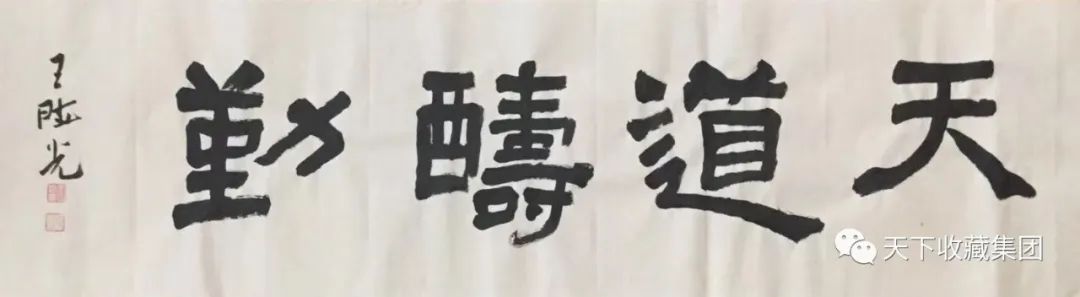 天道醻勤
王陆光
天下收藏集团